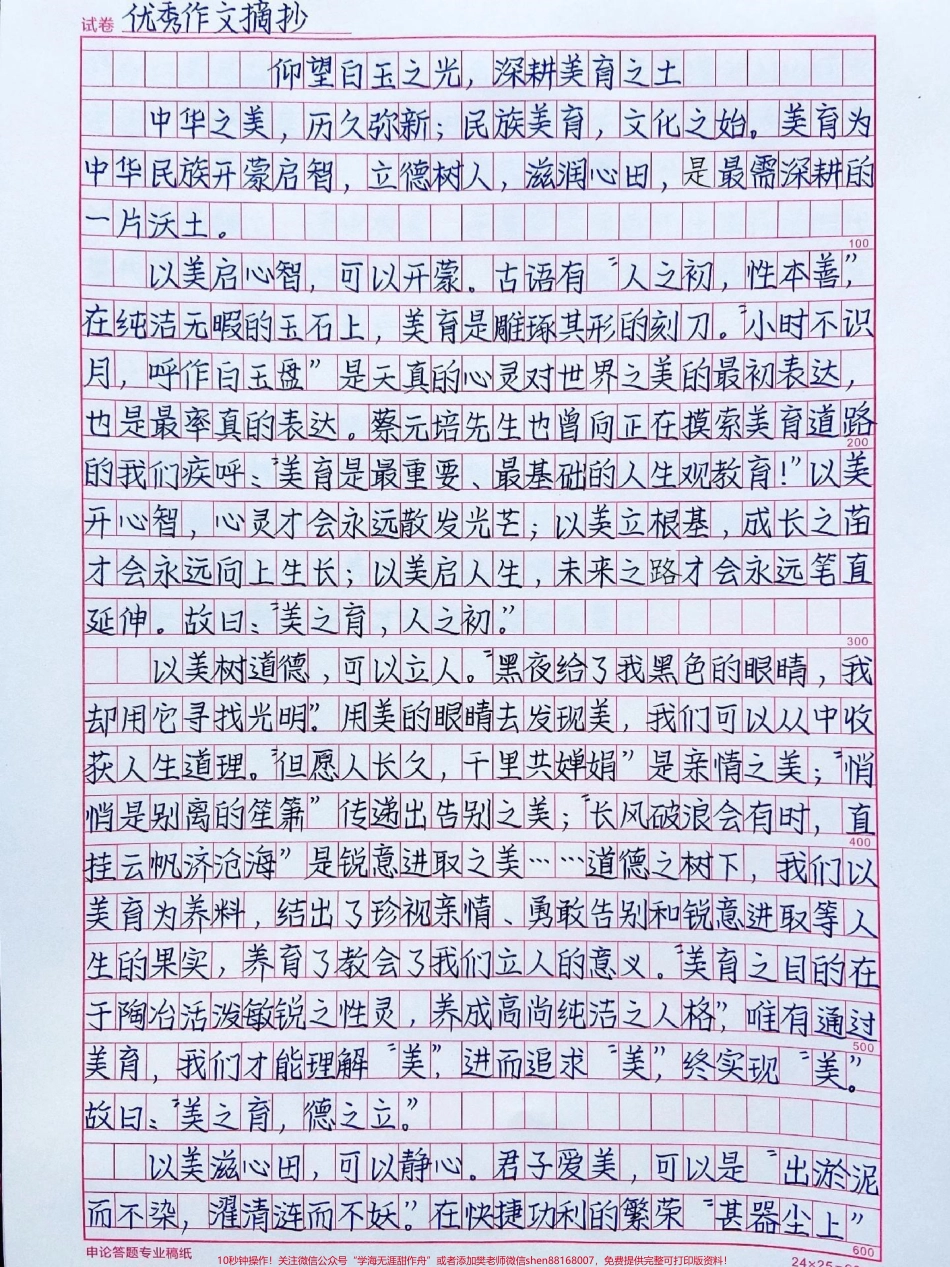 试卷 优秀作文摘抄
仰望白玉之光，深耕美育之土
中华之美，历久弥新；民族美育，文化之始。美育为
中华民族开蒙启智，立德树人，滋润心田，是最需深耕的
一片沃土。
100
以美启心智，可以开蒙。古语有“人之初，性本善”，
在纯洁无暇的玉石上，美育是雕琢其形的刻刀。“小时不识
月，呼作白玉盘”是天真的心灵对世界之美的最初表达，
也是最率真的表达。蔡元培先生也曾向正在摸索美育道路
200
的我们疾呼：“美育是最重要、最基础的人生观教育！”以美
开心智，心灵才会永远散发光芒；以美立根基，成长之苗
才会永远向上生长；以美启人生，未来之路才会永远笔直
延伸。故曰：“美之育，人之初。”
300
以美树道德，可以立人。“黑夜给了我黑色的眼睛，我
却用它寻找光明”。用美的眼睛去发现美，我们可以从中收
获人生道理。“但愿人长久，千里共婵娟”是亲情之美；“悄
悄是别离的笙箫”传递出告别之美；“长风破浪会有时，直
400
挂云帆济沧海”是锐意进取之美……道德之树下，我们以
美育为养料，结出了珍视亲情、勇敢告别和锐意进取等人
生的果实，养育了教会了我们立人的意义。“美育之目的在
于陶冶活泼敏锐之性灵，养成高尚纯洁之人格”，唯有通过
500
美育，我们才能理解“美”，进而追求“美”，终实现“美”。
故曰：“美之育，德之立。”
以美滋心田，可以静心。君子爱美，可以是“出淤泥
而不染，濯清涟而不妖”。在快捷功利的繁荣“甚器尘上”
600
申论答题专业稿纸
10秒钟操作！关注微信公众号“学海无涯甜作舟”或者添加樊老师微信shen88168007，免费提供完整可打印版资料！
24×25=